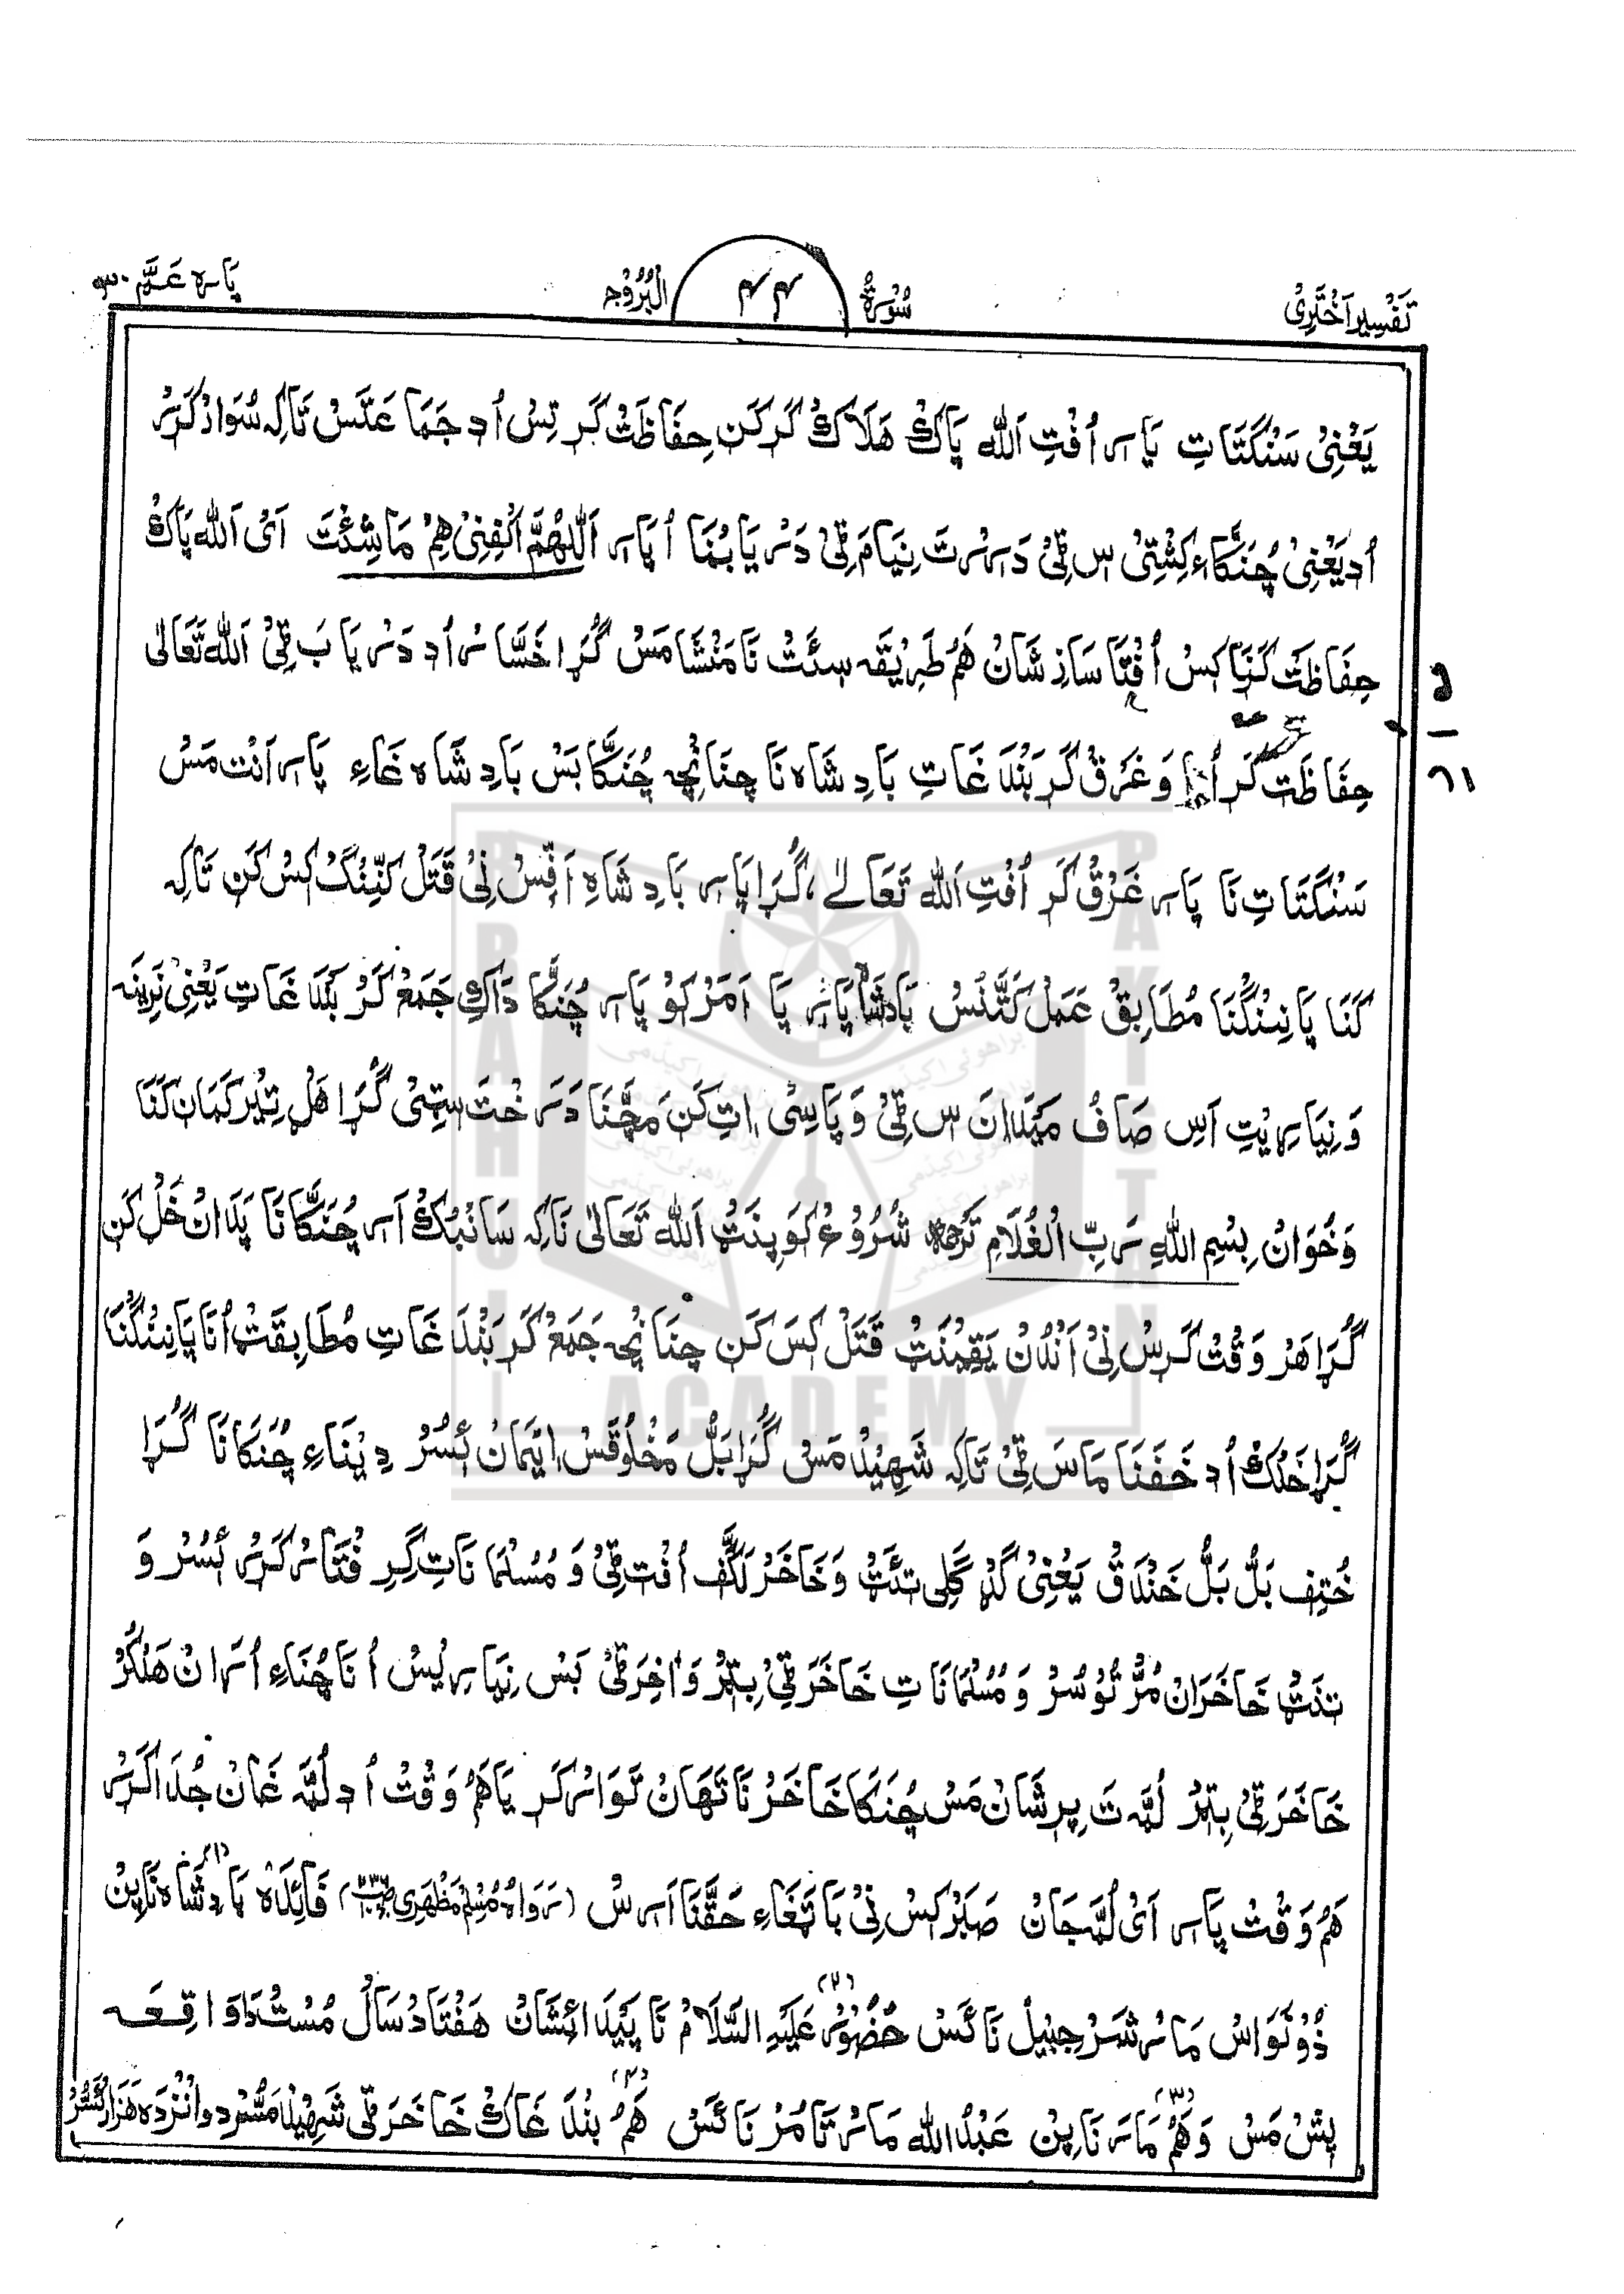 تَفْسِيْرِ اَخْتَرِىْ سُوْرَةُ ٤٤ الْبُرُوْجِ پَارہ عَمَّ ٣٠
يَعْنِىْ سَنْگتَاتِ پَارہ اُفْتِ اَللّٰہ پَاکْ هَلَاکْ کَر کَن حِفَاظَتْ کَر تِسْ اُد جَمَا عَتَسْ تَاکِہ سُوَارْ کَرٖ
اُد يَعْنِىْ چُنَکَّاء کِشْتِىْ س ٹِىْ دَرسُرتَ نِيَامَ ٹِىْ دَرْيَابُنَا اُ پَارہ اَللّٰهُمَّ اکْفِنِىْ هِمْ مَا شِئْتَ اَىْ اَللّٰہ پَاکْ
حِفَاظَتْ کَنَا کِسْ اُفْتَا سَازِ شَانْ هَمْ طَرِيْقَہ سِئَتْ نَا مَنْشَا مَسْ گُڑَا خَسَّارُ اُد دَرْيَابَ ٹِىْ اَللّٰہ تَعَالٰى
حِفَاظَتْ کَر اُنَا وَ غَرْقْ کَر بَنْدَ غَاتِ بَادِ شَاہ نَا چِنَانْچِہ چُنَکَّا بَسْ بَادِ شَاہ غَاءِ پَارہ اَنْت مَسْ
سَنْگَتَاتِ نَا پَارہ غَرْقْ کَر اُفْتِ اَللّٰہ تَعَالٰے، گُڑَا پَارہ بَادِ شَاہِ اَفَّسْ نِىْ قَتَلْ کَنِّنْگ کِسْ کَن تَاکِہ
کَنَا پَانِنْگُنَا مُطَابِقْ عَمَلْ کَتَّنُسْ بَادشَا پَارہ يَا اَمَرْ کَوْ پَارہ چُنَکَّا دَاکِہ جَمَعْ کَرْ بَنْدَ غَاتِ يَعْنِىْ نَرِيْنَہ
وَ نِيَارِيْتِ اَسِ صَافْ مَيْدَان س ٹِىْ وَ پَاسِىْ اِتِ کَنَ مَچَّنَا دَرَخْتَ سِتِىْ گُڑَا هَل تِيْر کَمَان کَنَا
وَ خُوَانْ بِسْمِ اللّٰہِ رَبِّ الْغُلَامِ تَرجمہ شُرُوْعْ کَوَ پِنَتْ اَللّٰہ تَعَالٰى نَاکِہ سَانْبُکْ اَرہ چُنَکَّا نَا پَدَ انْ خَلْ کَن
گُڑَا هَرْ وَقْتْ کَرِسْ نِىْ اَنْدُنْ يَقِيْنَتْ قَتَلْ کِسَ کَن چِنَانْچِہ جَمَعْ کَر بَنْدَ غَاتِ مُطَابِقَتْ اُنَا پَانِنْگُنَا
گُڑَا خَلْکْ اُد خَفَنَا مَاسَ ٹِىْ تَاکِہ شَهِيْدْ مَسْ گُڑَا بَلُّ مَخْلُوْقَسْ اِيْمَانْ ئِسُرْ دِيْنَاءِ چُنَکَا نَا گُڑَا
خُتِفِ بَلُّ بَلُّ خَنْدَقْ يَعْنِىْ گَڈ گَلِى تِئَتْ وَ خَاخَرْ لَگَّفِ اُفْتِ ٹِىْ وَ مُسْلمَانَاتِ گِرِ فْتَارْ کَرٖ ئِسُرْ وَ
تِنَتْ خَاخَرَانْ مُرُّ تُوْسُرْ وَ مُسْلمَانَاتِ خَاخَرَ ٹِىْ بِتٖرْ وَاٰخِرَ ٹِىْ بَس نِيَارِيْسْ اُنَا چُنَاءِ اُرَانْ هَلْکُرْ
خَاخَرَ ٹِىْ بِتٖرْ لُمَّہ تَ پِرِشَانْ مَسْ چُنَکَا خَاخَرْ نَا تَهَانْ تَوَارْ کَر يَا هَمْ وَقْتْ اُد لُمَّہ غَانْ جُدَا کَرٖ
هَمْ وَقْتْ پَارہ اَىْ لُمَّہ جَانْ صَبَرْ کَسْ نِىْ بَاتَغَاءِ حَقَّنَا اَرِسْ (رَوَاہُ مُسْلِم مَظْهَرِى) فَائِدَہْ (١) بَادِشَاہ نَاپِنْ
ذُوْنَوَاسْ مَارْ شَرْجِيْلْ نَائَسْ (٢) حُضُوْرْ عَلَيْہِ السَّلَامْ نَا پَيْدَا ئِشَانْ هَفْتَادْ سَالْ مُسْتْ دَا وَاقِعَہ
پِشْ مَسْ (٣) وَ هَمْ مَارَ نَاپِنْ عَبْدُ اللّٰہ مَارْ تَامُرْ نَائَسْ (٤) هَمْ بَنْدَ غَاکْ خَاخَرَ ٹِى شَهِيْدْ مَسُّرْ دوانْزدَہ هَزَار ئَسُرْ
ع
١
١٦
BRAHUI
ACADEMY
PAKISTAN
براہوئی اکیڈمی